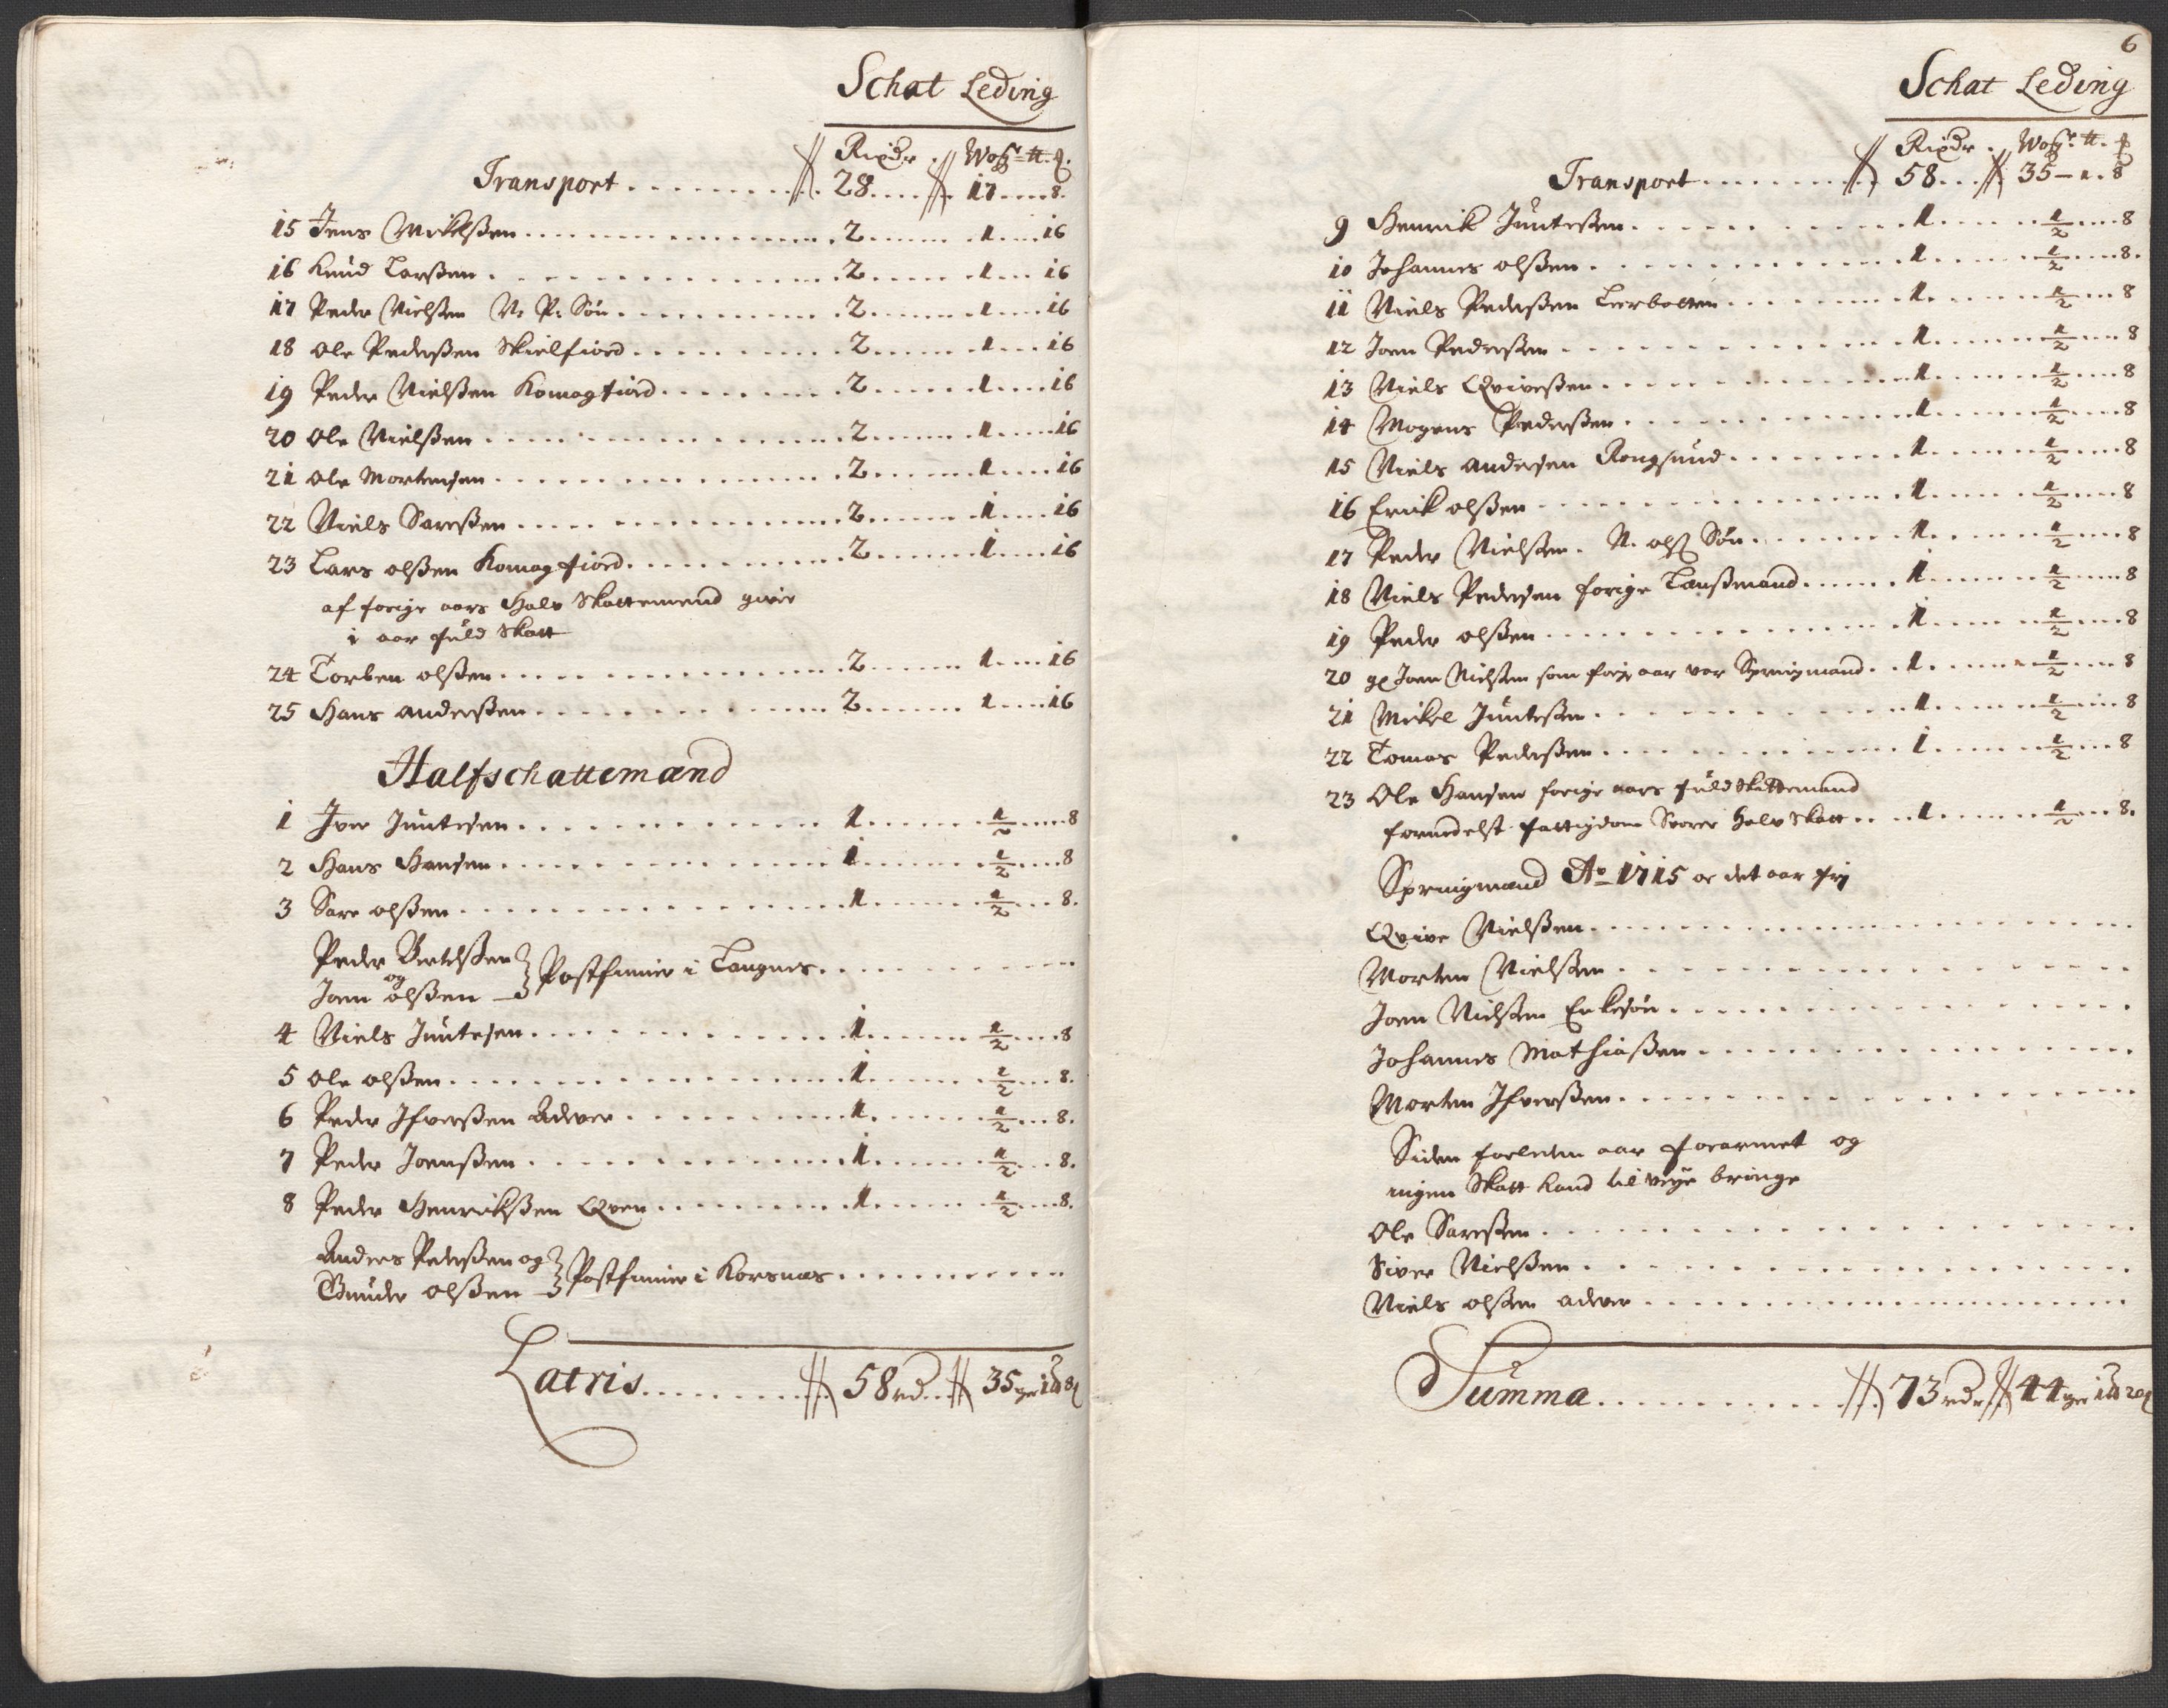 Schat Leding
Rixdr. Wog. ℔. ƺ.
Transport . . . . 28 . . . . 17 . . . . 8.
15 Jens Mickelßen . . . . 2 . . . . 1 . . . . 16
16 Knud Larßen . . . . 2 . . . . 1 . . . . 16
17 Peder Nielsen N. P. Søn . . . . 2 . . . . 1 . . . . 16
18 Ole Pederßen Skielfiord . . . . 2 . . . . 1 . . . . 16
19 Peder Nielßen Komagfiord . . . . 2 . . . . 1 . . . . 16
20 Ole Nielßen . . . . 2 . . . . 1 . . . . 16
21 Ole Mortensen . . . . 2 . . . . 1 . . . . 16
22 Niels Sareßen . . . . 2 . . . . 1 . . . . 16
23 Lars olßen Komagfiord . . . . 2 . . . . 1 . . . . 16
af forige aars Halv Skattemend giver
i aar fuld Skatt
24 Torben olßen . . . . 2 . . . . 1 . . . . 16
25 Hans anderßen . . . . 2 . . . . 1 . . . . 16
Halfschattemænd
1 Iver Juntesen . . . . 1 . . . . 1/2 . . . . 8
2 Hans Hansen . . . . 1 . . . . 1/2 . . . . 8
3 Sare olßen . . . . 1 . . . . 1/2 . . . . 8.
Peder Bertelßen
og
Joen olßen } Postfinner i Langnes . . . .
4 Niels Juntesen . . . . 1 . . . . 1/2 . . . . 8
5 Ole olßen . . . . 1 . . . . 1/2 . . . . 8.
6 Peder Ifverßen Adver . . . . 1 . . . . 1/2 . . . . 8.
7 Peder Joenßen . . . . 1 . . . . 1/2 . . . . 8.
8 Peder Henrichßen Qven . . . . 1 . . . . 1/2 . . . . 8.
Anders Pederßen og
Gunder olßen } Postfinner i Korsnæs . . . .
Latris . . . . 58 rd. . . 35 1 8
6
Schat Leding
Rixdr. Wog. ℔. ƺ
Transport . . . . 58 . . . 35 – 1 . 8
9 Henrik Juntesen . . . . 1 . . . . 1/2 . . . . 8
10 Johannes olßen . . . . 1 . . . . 1/2 . . . . 8.
11 Niels Pederßen Lerbotten . . . . 1 . . . . 1/2 . . . . 8
12 Joen Pedersen . . . . 1 . . . . 1/2 . . . . 8
13 Niels Qviveßen . . . . 1 . . . . 1/2 . . . . 8
14 Mogens Pederßen . . . . 1 . . . . 1/2 . . . . 8
15 Niels andersen Rongsund . . . . 1 . . . . 1/2 . . . . 8
16 Erick olßen . . . . 1 . . . . 1/2 . . . . 8
17 Peder Nielsen. N. olß Søn . . . . 1 . . . . 1/2 . . . . 8
18 Niels Pedersen forige Lænßmand . . . . 1 . . . . 1/2 . . . . 8
19 Peder olßen . . . . 1 . . . . 1/2 . . . . 8
20 Joen Nielsen som forje aar var Springmand . . 1 . . . . 1/2 . . . . 8
21 Mickel Juntesen . . . . 1 . . . . 1/2 . . . . 8
22 Tomas Pederßen . . . . 1 . . . . 1/2 . . . . 8
23 Ole Hansen forige aars fuld Skattemand
formedelst fattigdom Svarer Halv Skatt . . 1 . . . . 1/2 . . . . 8.
Springmænd Ao 1715 er det aar frj
Qvive Nielßen . . . .
Morten Nielßen . . . .
Joen Nielsen Enkesøn . . . .
Johannes Mathiaßen . . . .
Morten Ifverßen . . . .
Siden forleden aar forarmet og
ingen Skatt kand til veye bringe
Ole Sareßen . . . .
Siver Nielßen . . . .
Niels olßen adver . . . .
Summa . . . . 73 rdr 44 1 20